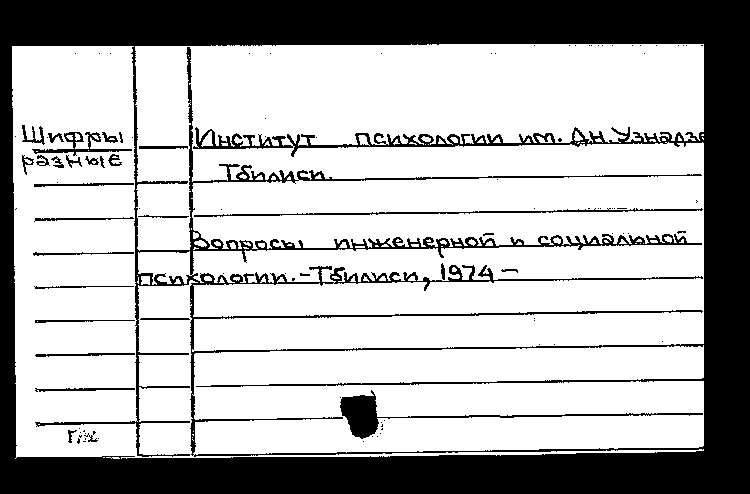 Шифры
разные
Институт психологии им. Дн. Узнадзе
Тбилиси.
Вопросы инженерной и социальной
психологии. - Тбилиси, 1974 -